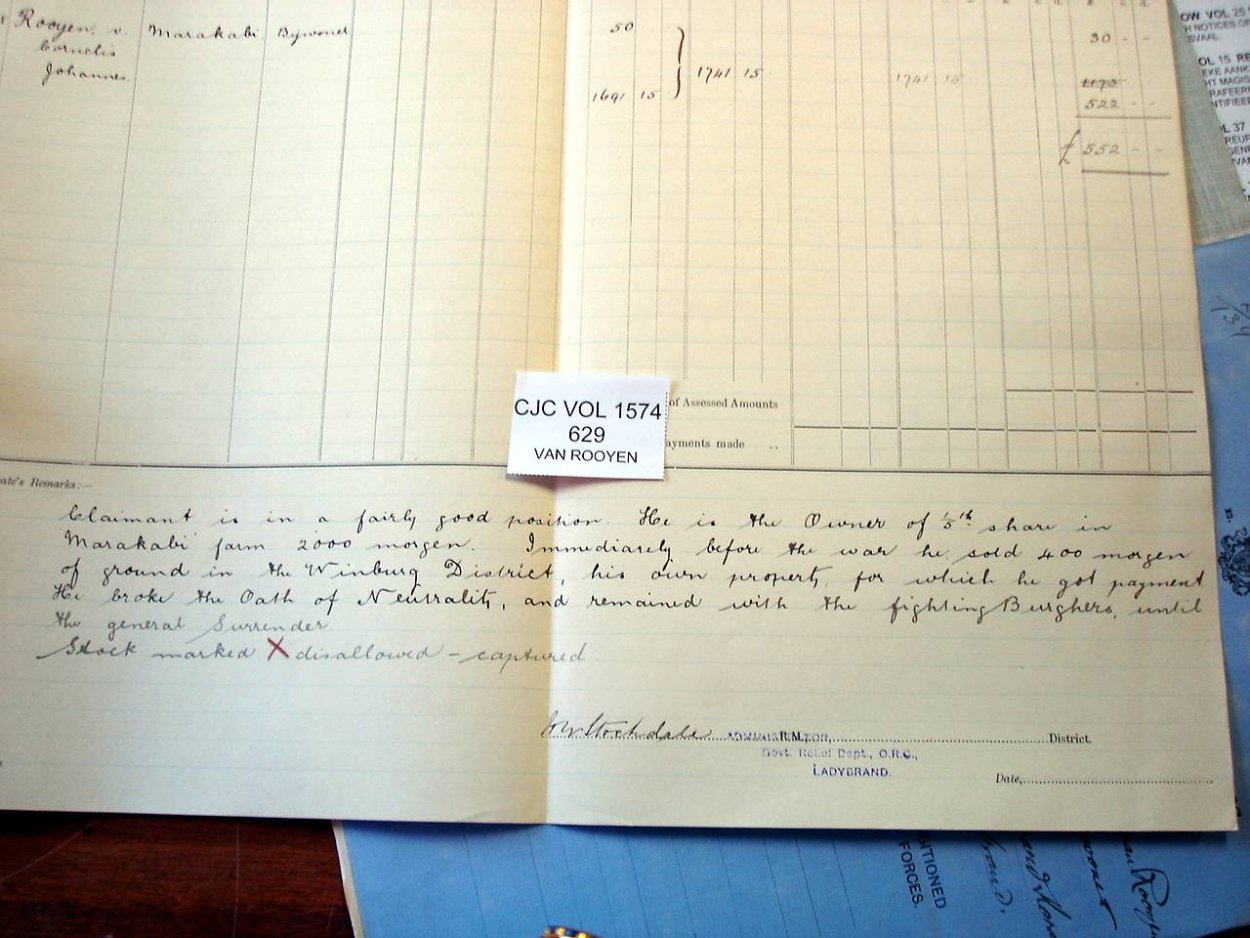 Rooyen, v. Marakabi Bywoner 50 30 - -
Cornelis
Johannes. 1741 15 1741 15 1173
1691 15 522 - -
£ 552 - -
CJC VOL 1574
629
VAN ROOYEN
of Assessed Amounts
ayments made ..
ate's Remarks:—
Claimant is in a fairly good position. He is the Owner of 1/5th share in
Marakabi farm 2000 morgen. Immediately before the war he sold 400 morgen
of ground in the Winburg District, his own property, for which he got payment
He broke the Oath of Neutrality, and remained with the fighting Burghers, until
the general Surrender
Stock marked X disallowed - captured
Stockdale ADMINISTRATOR, R.M., District.
Govt. Relief Dept., O.R.C.,
LADYBRAND.
Date,
OW VOL 25
H NOTICES OF
SVAAL.
OL 15 RE
EKE AANK
HT MAGIS
RAFEER
NTIFIEE
L 37
REUF
GEN
VA
SITIONED
FORCES.